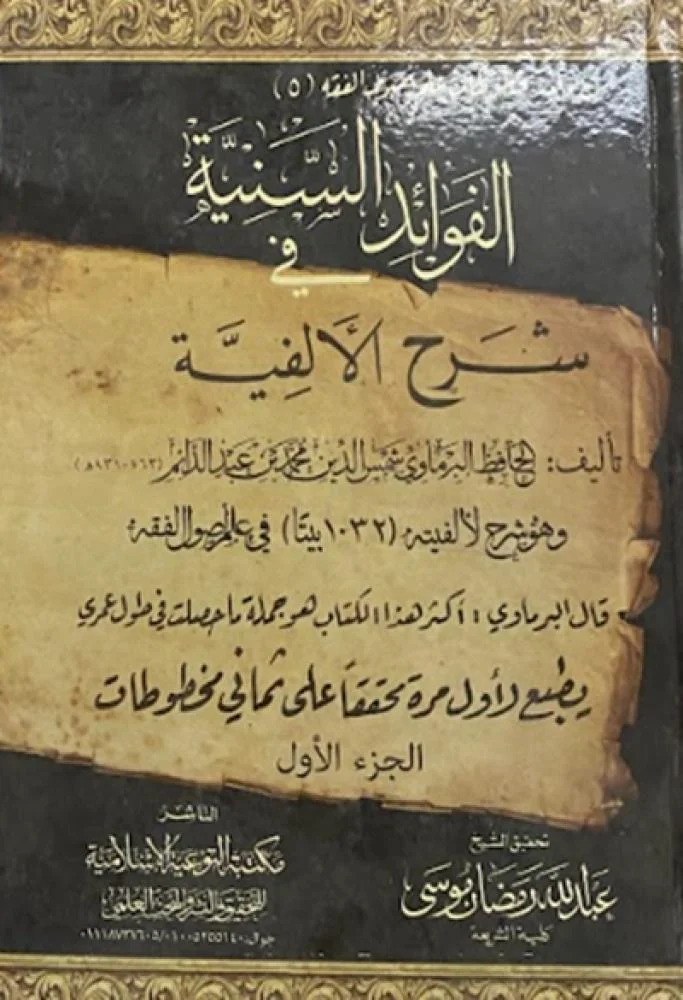 الفقه (٥)
الفَوَائِدُ السَّنِيَّةُ
في
شَرْحِ الأَلفِيَّة
تأليف: الحافظ البرماوي شمس الدين محمد بن عبد الدائم (٧٦٣-٨٣١هـ)
وهو شرح لألفيته (١٠٣٢ بيتًا) في علم أصول الفقه
قال البرماوي: أكثر هذا الكتاب هو جملة ما حصلت في طول عمري
يطبع لأول مرة محققاً على ثماني مخطوطات
الجزء الأول
الناشر
مكتبة التوعية الإسلامية
للتحقيق والنشر والبحث العلمي
جوال: ٠١٠٠٥٢٥٥١٤٠/٠١١١٨٧٣٧٦٠٥
تحقيق الشيخ
عبد الله رمضان موسى
كلية الشريعة